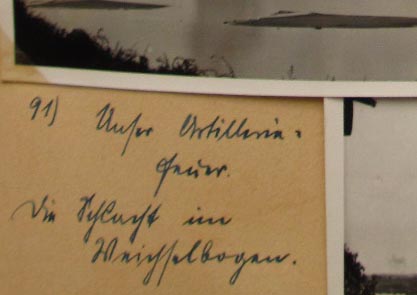 91) Unser Artillerie-
feuer.
Die Schlacht im
Weichselbogen.